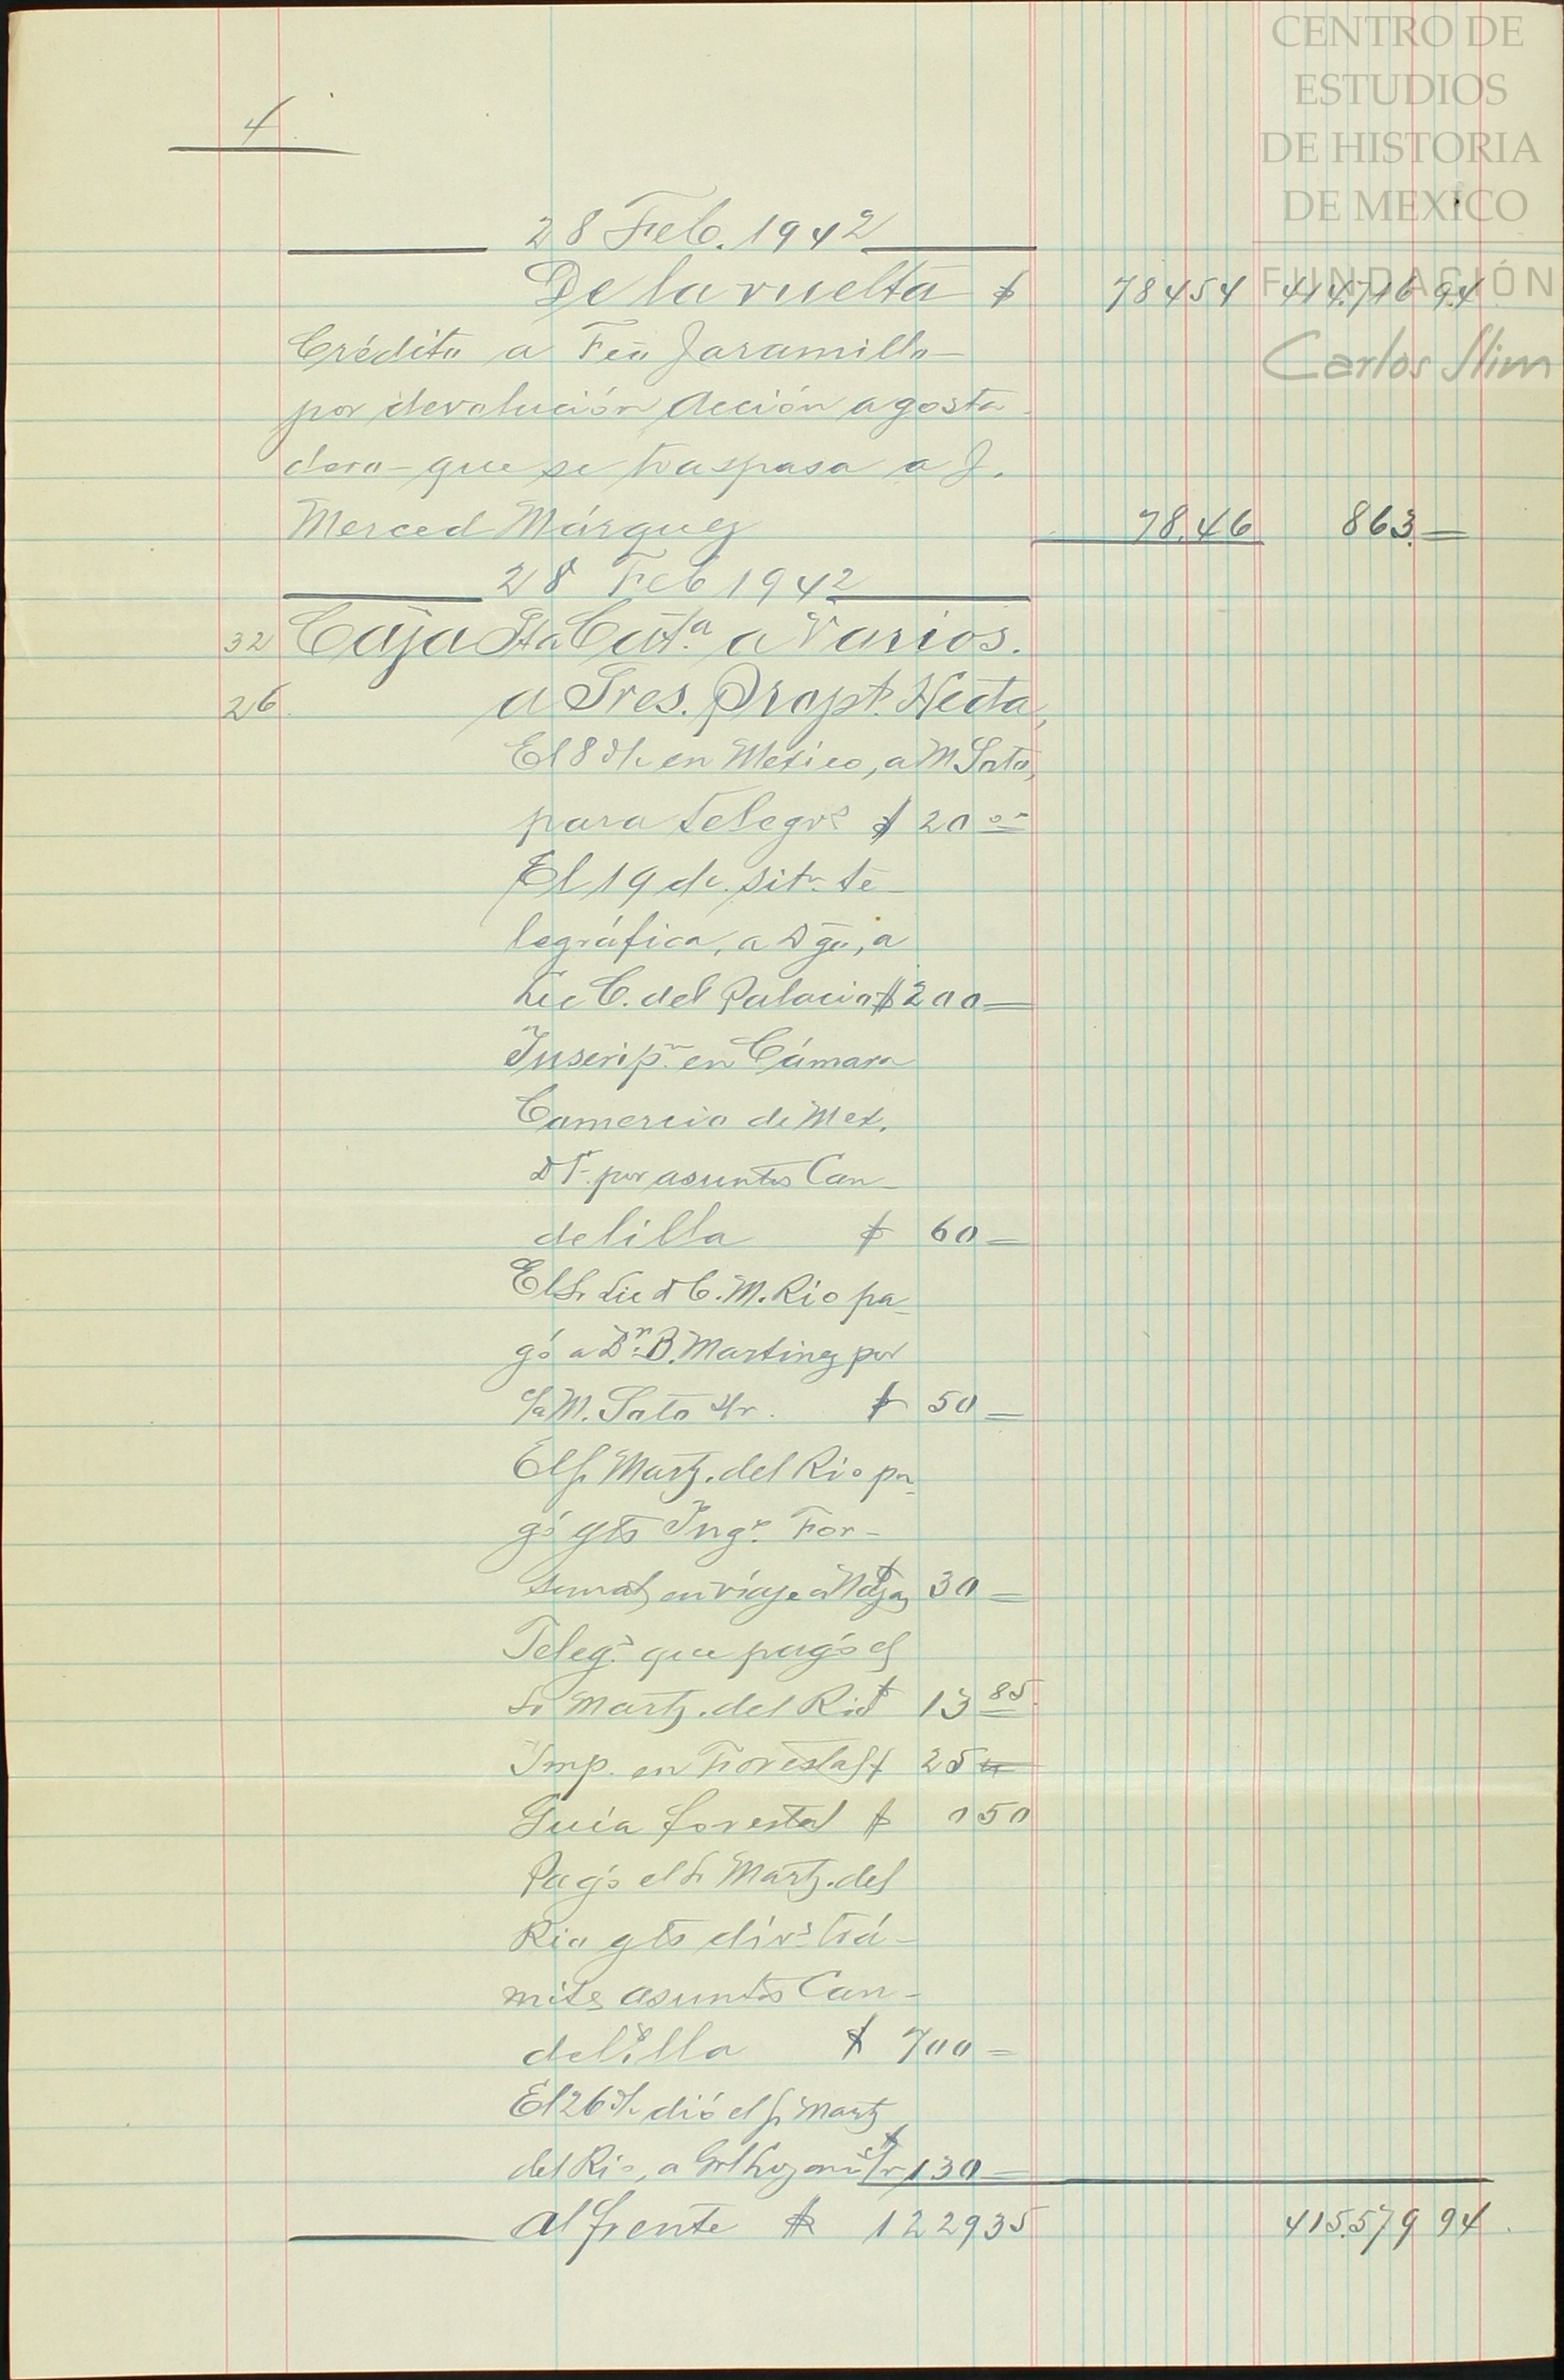 4
CENTRO DE
ESTUDIOS
DE HISTORIA
DE MEXICO
FUNDACIÓN
Carlos Slim
28 Feb. 1942
De la vuelta $ 784 54 414.716 94
Crédito a Fco Jaramillo
por devolución Acción agosta-
dero - que se traspasa a J.
Merced Márquez 78.46 863 =
28 Feb 1942
32 Caja Sta Cata a Varios.
26 a Sres. Propt. Hecta,
El 8 d/c en México, a M Soto,
para telegrs $ 20 00
El 19 dc. sitn te-
legráfica, a Dgo, a
Lic C. del Palacio $ 200 =
Inscripn en Cámara
Comercio de Mex.
D F. por asuntos Can-
delilla $ 60 =
El Sr Lic D C. M. Rio pa-
gó a Dn B. Martinez por
c/a M. Soto $ 50 =
El Sr Martz. del Rio pa-
gó gts Ingo For-
en viaje a $ 30 =
Telegs que pagó el
Sr Martz. del Rio $ 13 85
Imp. en Forestal $ 25 =
Guía forestal $ 0 50
Pagó el Sr Martz. del
Rio gts divs trá-
mites asuntos Can-
delilla $ 700 =
El 26 d/c dió el Sr Martz
del Rio, a $ 130 =
Al frente $ 1229 35 415.579 94